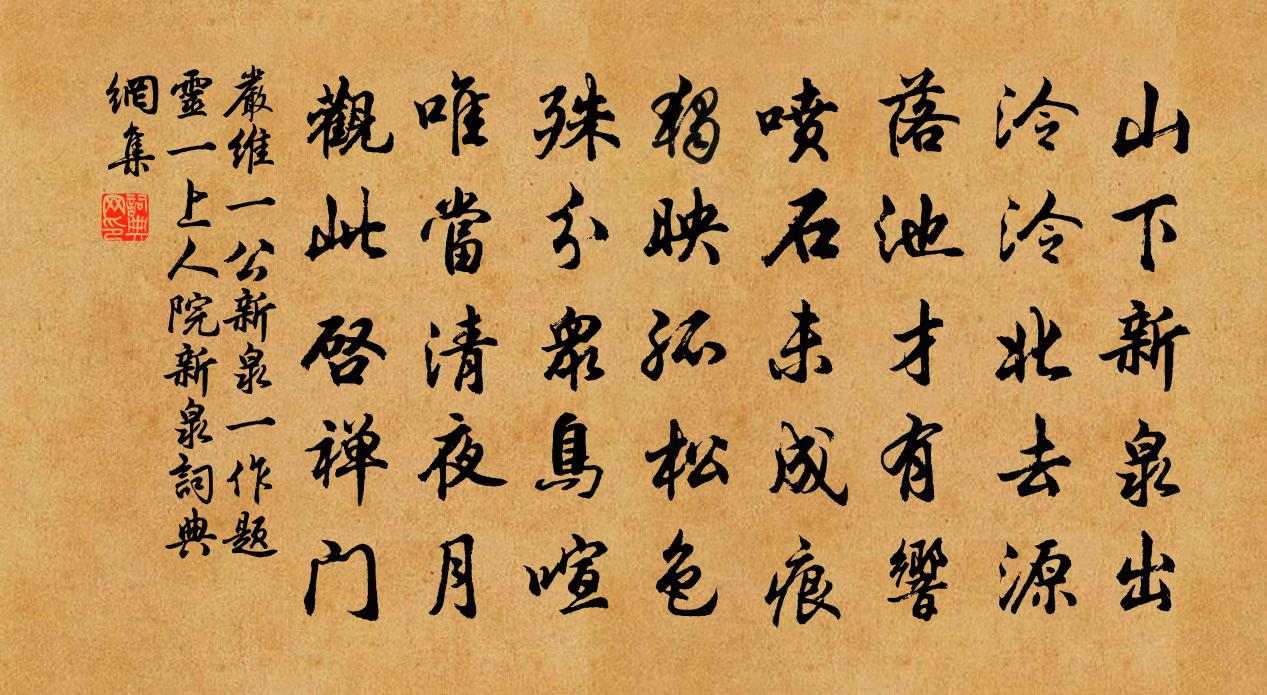 山下新泉出
泠泠北去源
落池才有響
噴石未成痕
獨映孤松色
殊分衆鳥喧
唯當清夜月
觀此啓禅门
嚴維一公新泉一作題
靈一上人院新泉詞典
網集
詞典网印